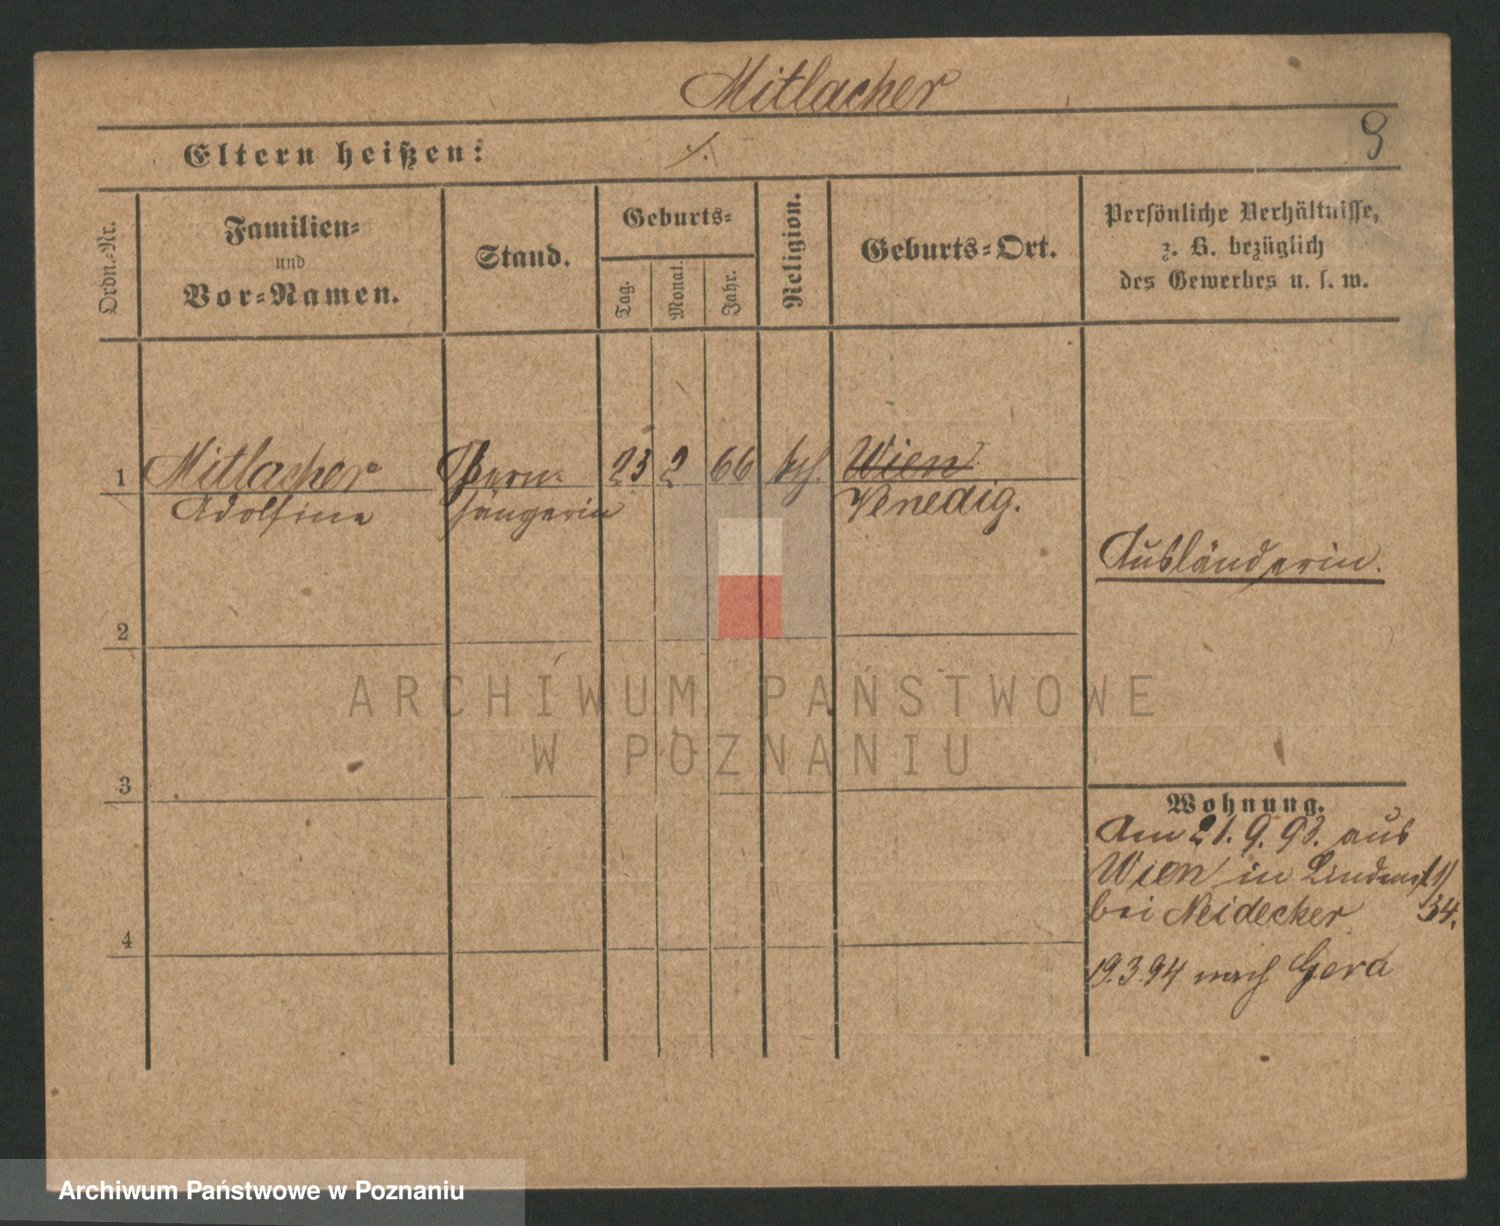 Mitlacher
9
Eltern heißen: ./.
Ordn.-Nr.
Familien-
und
Vor-Namen.
Stand.
Geburts-
Tag.
Monat.
Jahr.
Religion.
Geburts-Ort.
Persönliche Verhältnisse,
z. B. bezüglich
des Gewerbes u. s. w.
1 Mitlacher 23 2 66 kth. Wien
Adolfine sängerin Venedig.
Ausländerin.
2
ARCHIWUM PAŃSTWOWE
W POZNANIU
3
Wohnung.
Am 21. 9. 93. aus
Wien in Lindenstr. 1/
bei Neidecker 34.
4
19.3.94 nach Gera
Archiwum Państwowe w Poznaniu